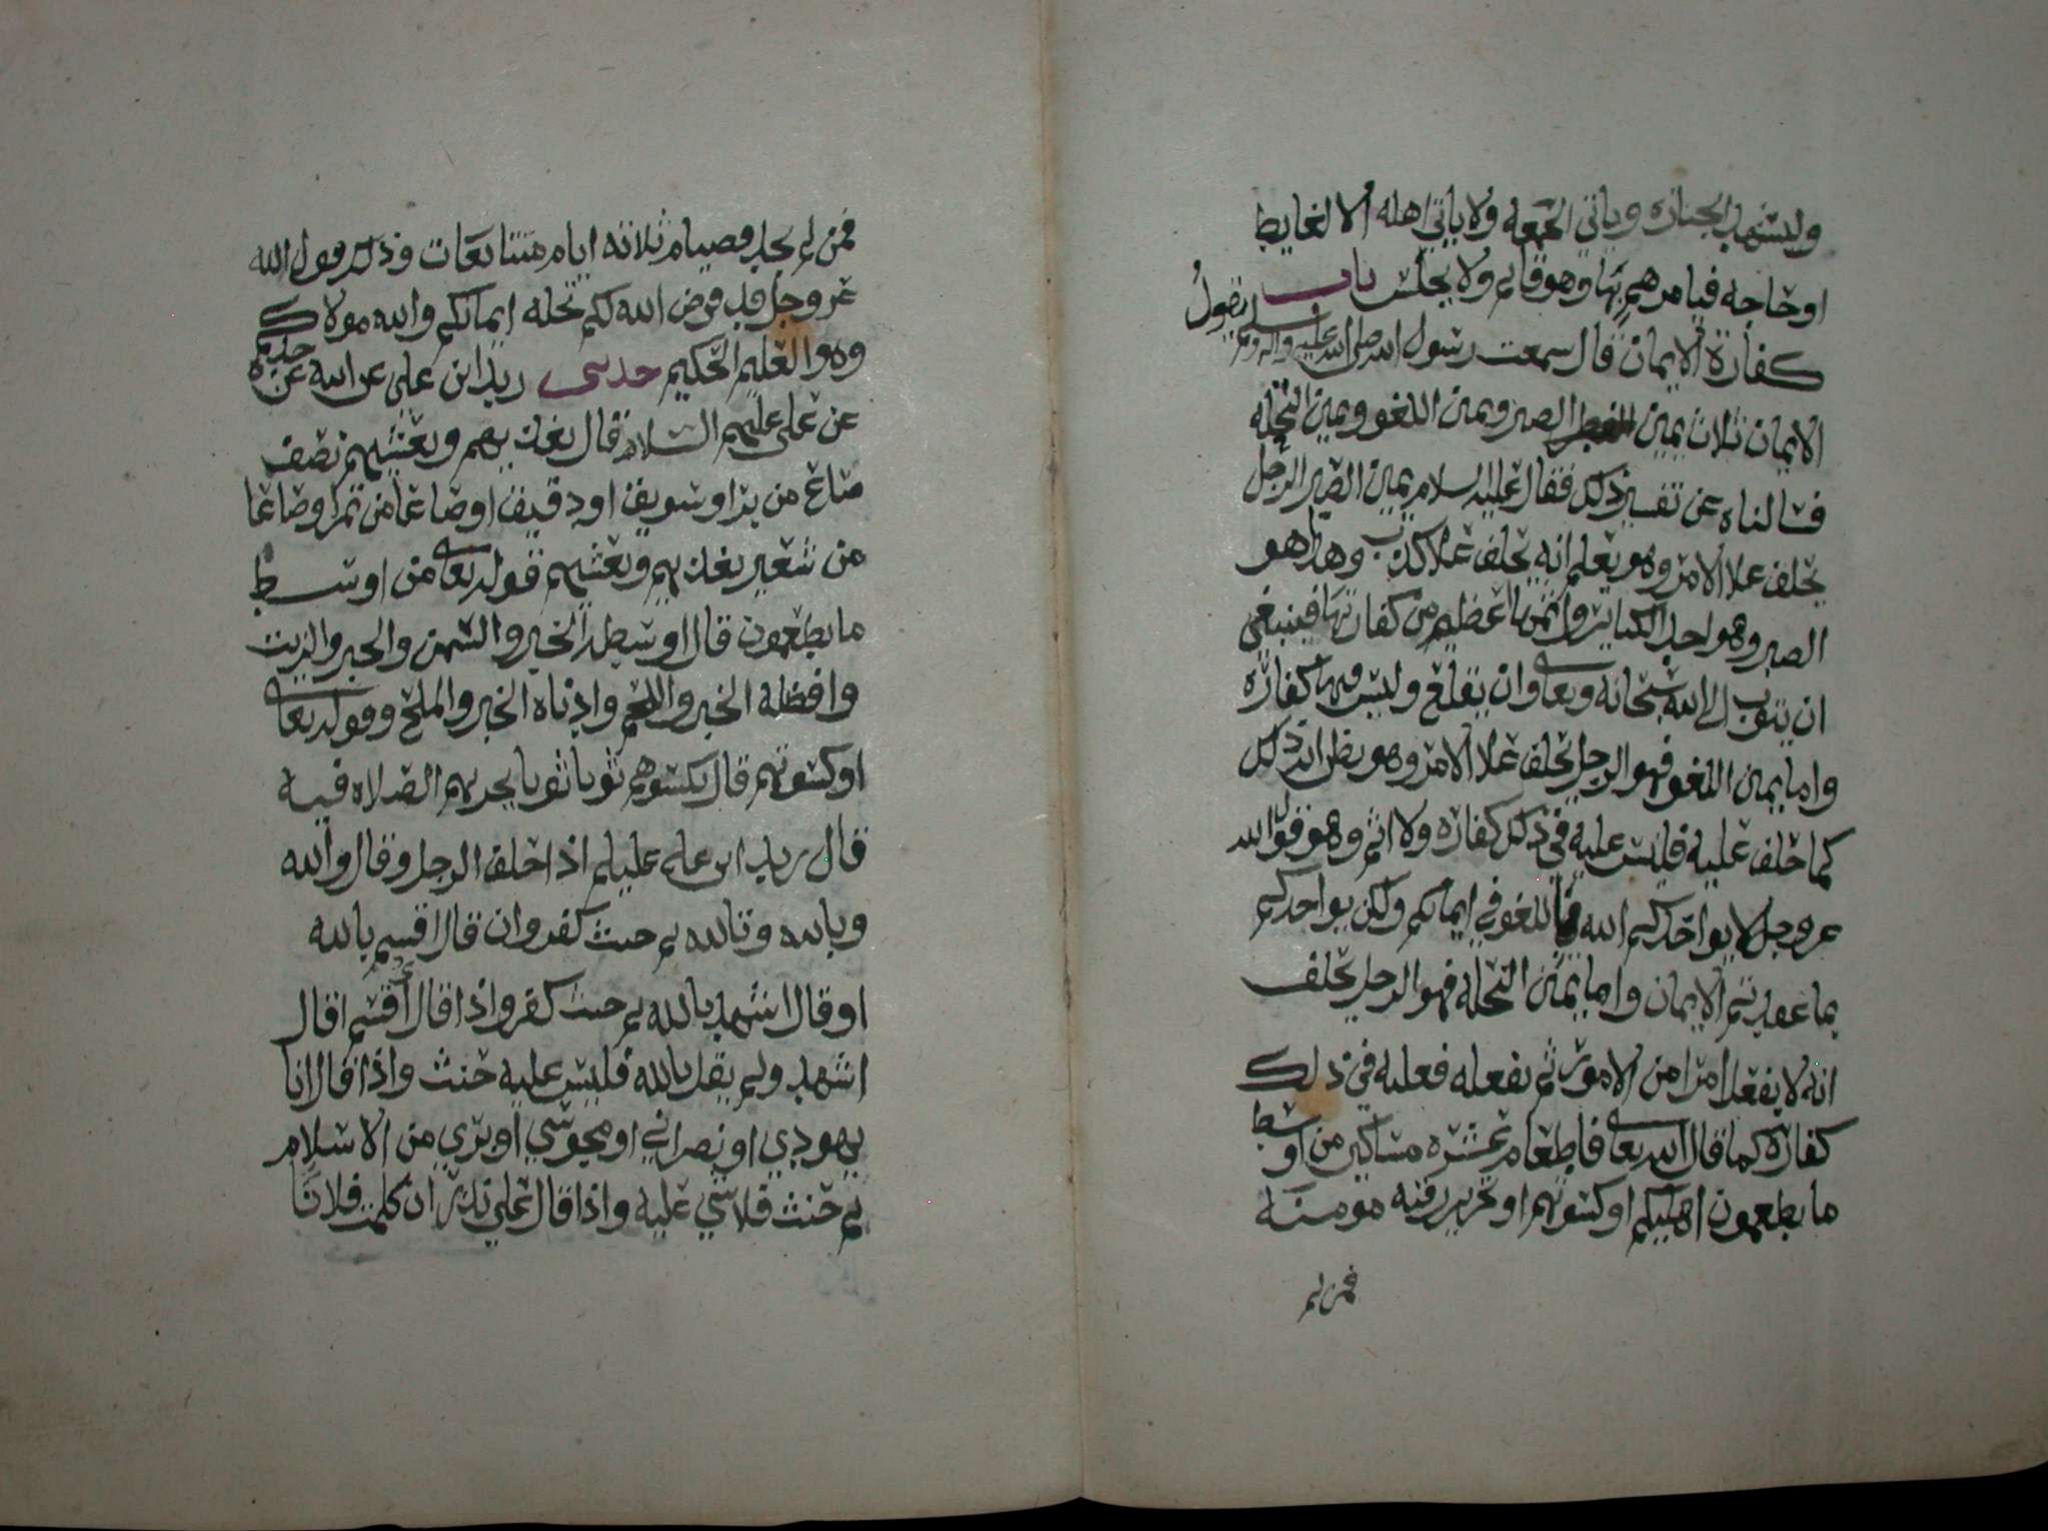 وليشهد الجنازه وياتي الجمعة ولا ياتي اهله الا لغايط
او حاجه فيامرهم بها وهو قايم ولا يجلس باب
كفارة الايمان قال سمعت رسول الله صلى الله عليه واله وسلم يقول
الايمان ثلاث يمين الصبر ويمين اللغو ويمين التحله
فسالناه عن تفسير ذلك فقال عليه السلام يمين الصبر الرجل
يحلف علا الامر وهو يعلم انه يحلف علا كذب وهذا هو
الصبر وهو احد الكباير واثمها اعظم من كفارتها فينبغي
ان يتوب الى الله سبحانه وتعالى وان يقلع وليس فيها كفارة
واما يمين اللغو فهو الرجل يحلف علا الامر وهو يظن ان ذلك
كما حلف عليه فليس عليه في ذلك كفاره ولا اثم وهو قول الله
عز وجل لا يواخذكم الله باللغو في ايمانكم ولكن يواخذكم
بما عقدتم الايمان واما يمين التحله فهو الرجل يحلف
انه لا يفعل امرا من الامور ثم يفعله فعليه في ذلك
كفارة كما قال الله تعالى فاطعام عشره مساكين من اوسط
ما تطعمون اهليكم او كسوتهم او تحرير رقبه مومنة
فمن لم
فمن لم يجد فصيام ثلاثه ايام متتابعات وذلك قول الله
عز وجل قد فرض الله لكم تحله ايمانكم والله مولاكم
وهو العليم الحكيم حدثني زيد ابن علي عن ابيه عن جده
عن علي عليهم السلام قال يغذيهم ويعشيهم نصف
صاع من بر او سويق او دقيق او صاعا من تمر او صاعا
من شعير يغذيهم ويعشيهم قوله تعالى من اوسط
ما تطعمون قال اوسطه الخبز والسمن والخبز والزيت
وافظله الخبز واللحم وادناه الخبز والملح وقوله تعالى
او كسوتهم قال يكسوهم ثوبا ثوبا يجزيهم الصلاه فيه
قال زيد ابن علي عليلم اذا حلف الرجل وقال والله
وبالله وتالله ثم حنث كفر وان قال اقسم بالله
او قال اشهد بالله ثم حنث كفر واذا قال أقسم اقال
اشهد ولم يقل بالله فليس عليه حنث واذا قال انا
يهودي او نصراني او مجوسي او بري من الاسلام
ثم حنث فلا شي عليه واذا قال علي نذر ان كلمت فلانا